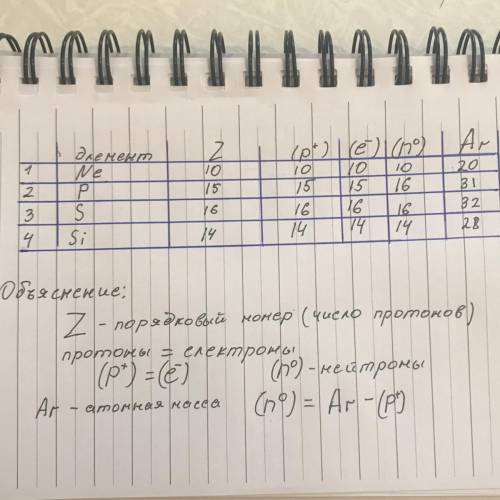 элемент Z (p⁺) (e⁻) (n⁰) Ar
1 Ne 10 10 10 10 20
2 P 15 15 15 16 31
3 S 16 16 16 16 32
4 Si 14 14 14 14 28
Объяснение:
Z - порядковый номер (число протонов)
протоны = електроны
(p⁺) = (e⁻) (n⁰) - нейтроны
Ar - атомная масса (n⁰) = Ar - (p⁺)